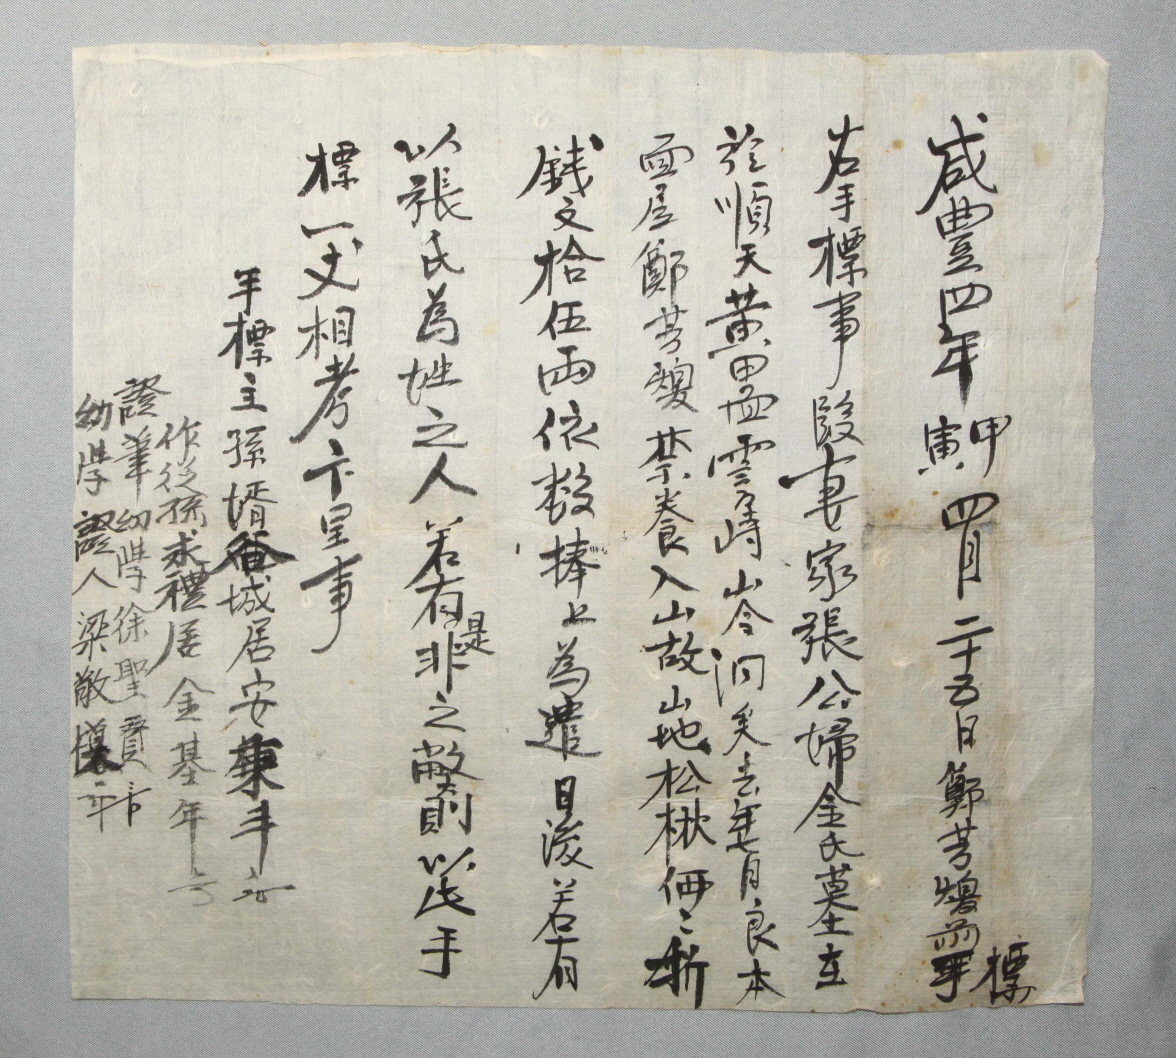 咸豊四年甲寅四月二十五日鄭芳煥前手標
右手標事段妻家張公婦金氏墓土在
於順天黄田面雲峙山令洞矣去年七月良本
面居鄭芳煥禁養入山故山地松楸価〻折
錢文拾伍両依数捧上為遣日後若有
以張氏為姓之人若有是非之獘則以此手
標一丈相考卞呈事
手標主孫婿谷城居安東手
作從孫求禮居金基年
證筆幼學徐聖賚
幼學證人梁敬